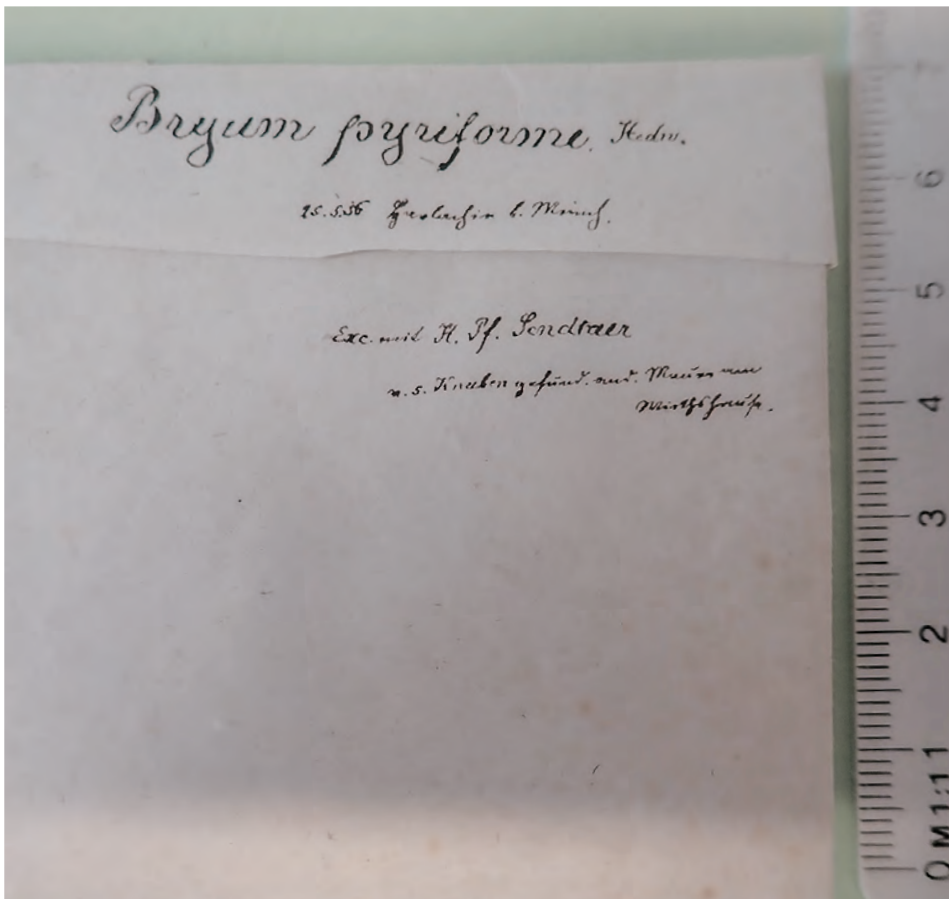 Bryum pyriforme. Hedw.
25.5.56 Harlachin b. Münch.
Exc. mit H. Pf. Sendtner
v. s. Knaben gefund. and. Mauer am
Wirthshause.
7
6
5
4
3
2
0 M 1:1 1